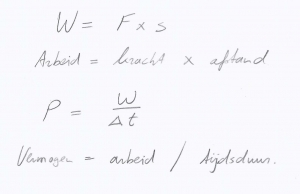 W = F x s
Arbeid = kracht x afstand
P = W / Δt
Vermogen = arbeid / tijdsduur.